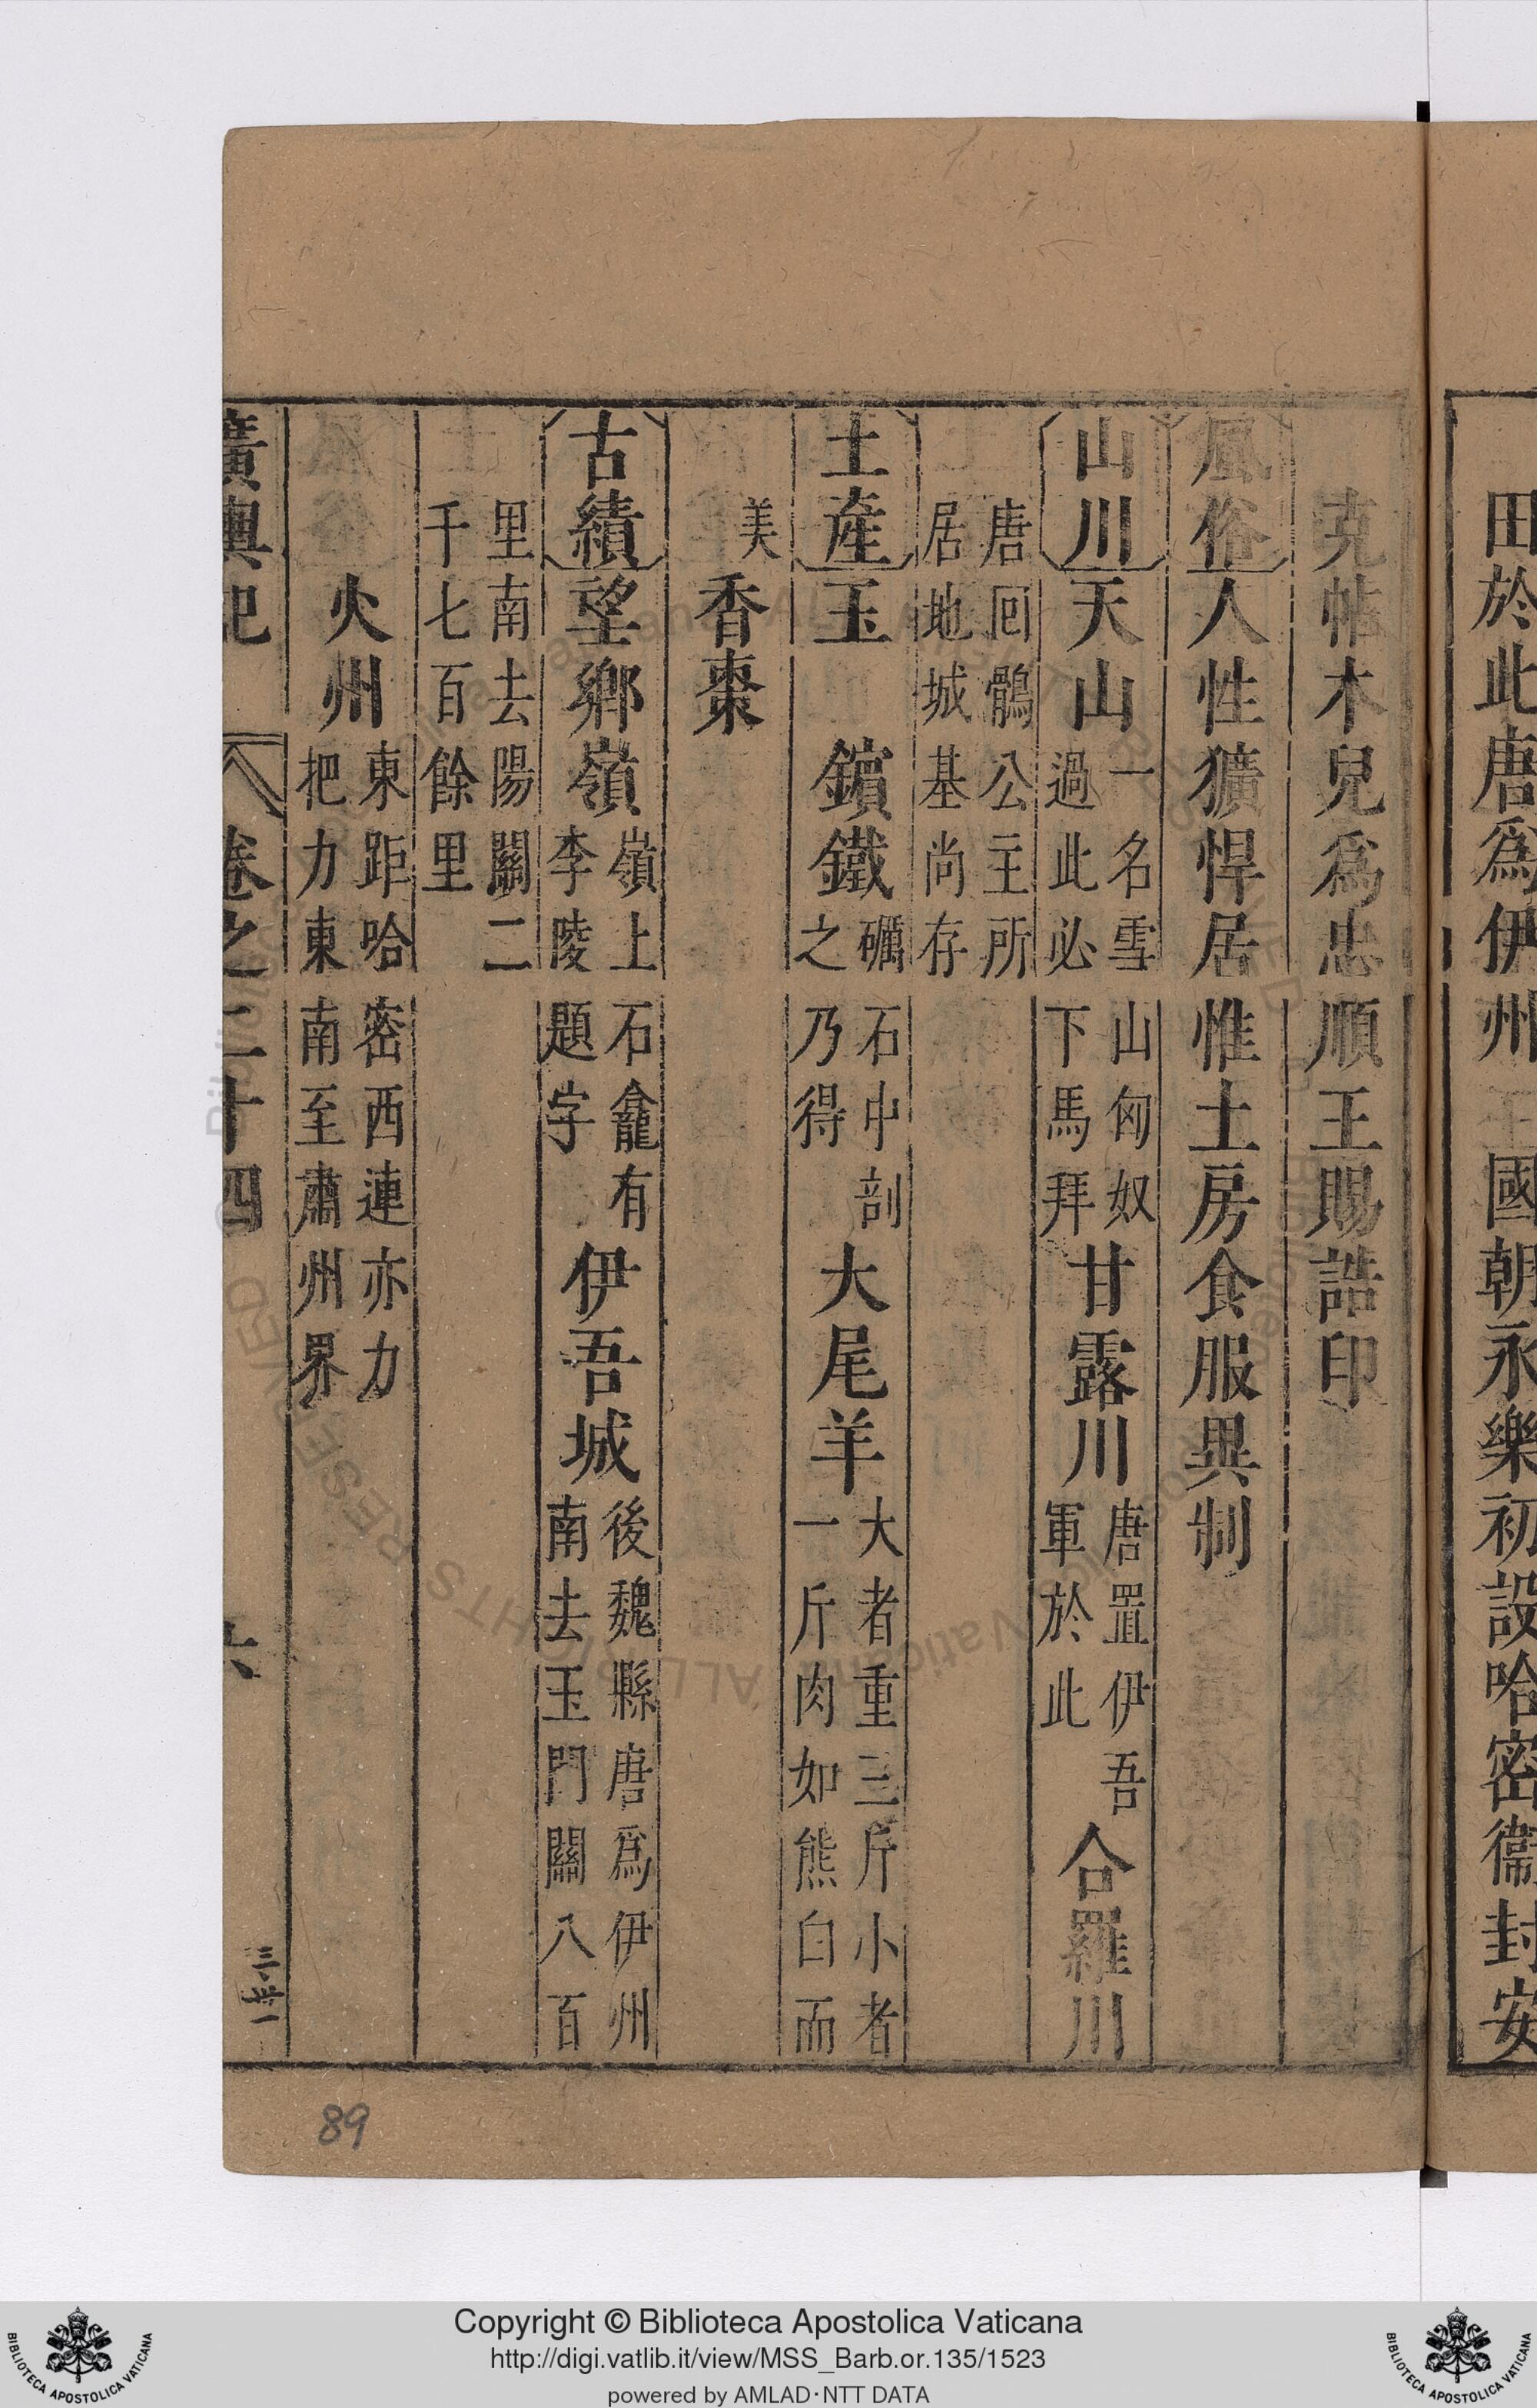 田於此唐爲伊州國朝永樂初設哈密衞封安
克帖木兒爲忠順王賜誥印
風俗人性獷悍居惟土房食服異制
山川天山一名雪山匈奴過此必下馬拜甘露川唐置伊吾軍於此合羅川
唐回鶻公主所居地城基尚存
土産玉 鑌鐵礪石中剖之乃得大尾羊大者重三斤小者一斤肉如熊白而
美香棗
古蹟望鄉嶺嶺上石龕有李陵題字伊吾城後魏縣唐爲伊州南去玉門關八百
里南去陽關二千七百餘里
火州東距哈密西連亦力把力東南至肅州界
廣輿記 卷之二十四 六
89
Copyright © Biblioteca Apostolica Vaticana
http://digi.vatlib.it/view/MSS_Barb.or.135/1523
powered by AMLAD·NTT DATA
BIBLIOTECA APOSTOLICA VATICANA
BIBLIOTECA APOSTOLICA VATICANA